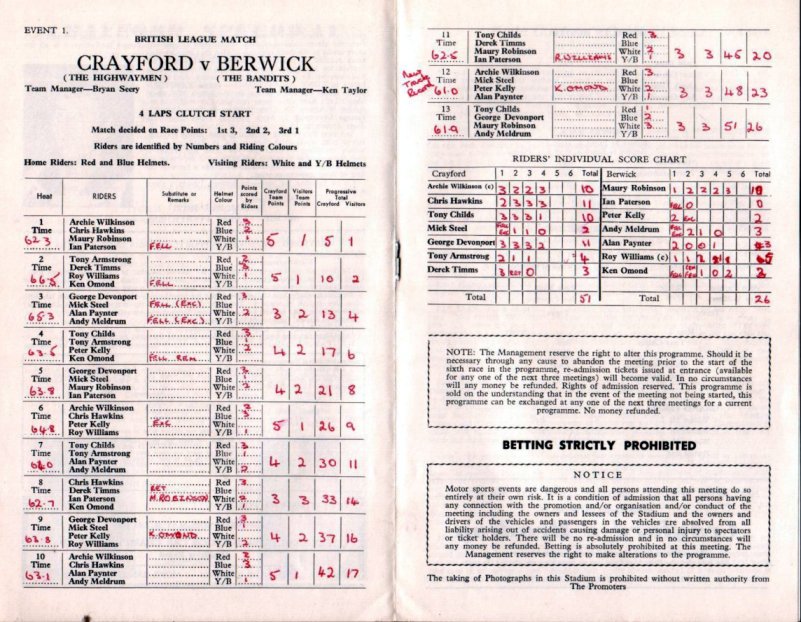 EVENT 1.
BRITISH LEAGUE MATCH
CRAYFORD v BERWICK
(THE HIGHWAYMEN) (THE BANDITS)
Team Manager—Bryan Seery Team Manager—Ken Taylor
4 LAPS CLUTCH START
Match decided on Race Points: 1st 3, 2nd 2, 3rd 1
Riders are identified by Numbers and Riding Colours
Home Riders: Red and Blue Helmets. Visiting Riders: White and Y/B Helmets
Heat RIDERS Substitute or Remarks Helmet Colour Points scored by Riders Crayford Team Points Visitors Team Points Progressive Total Crayford Visitors
1 Archie Wilkinson Red 3
Time Chris Hawkins Blue 2
62.3 Maury Robinson White 1 5 1 5 1
Ian Paterson FELL Y/B
2 Tony Armstrong Red 2
Time Derek Timms Blue 3
66.5 Roy Williams White 1 5 1 10 2
Ken Omond FELL Y/B
3 George Devonport Red 3
Time Mick Steel FELL (EXC) Blue
65.3 Alan Paynter White 2 3 2 13 4
Andy Meldrum FELL (EXC) Y/B
4 Tony Childs Red 3
Time Tony Armstrong Blue 1
63.5 Peter Kelly White 2 4 2 17 6
Ken Omond FELL REM Y/B
5 George Devonport Red 3
Time Mick Steel Blue 1
63.8 Maury Robinson White 2 4 2 21 8
Ian Paterson Y/B
6 Archie Wilkinson Red 2
Time Chris Hawkins Blue 3
64.8 Peter Kelly EXC White 5 1 26 9
Roy Williams Y/B 1
7 Tony Childs Red 3
Time Tony Armstrong Blue 1
64.0 Alan Paynter White 4 2 30 11
Andy Meldrum Y/B 2
8 Chris Hawkins Red 3
Time Derek Timms RET Blue
62.7 Ian Paterson M. ROBINSON White 2 3 3 33 14
Ken Omond Y/B 1
9 George Devonport Red 3
Time Mick Steel Blue 1
63.8 Peter Kelly K. OMOND White 4 2 37 16
Roy Williams Y/B 2
10 Archie Wilkinson Red 2
Time Chris Hawkins Blue 3
63.1 Alan Paynter White 5 1 42 17
Andy Meldrum Y/B 1
11 Tony Childs Red 3
Time Derek Timms Blue
62.5 Maury Robinson White 2 3 3 45 20
Ian Paterson R. WILLIAMS Y/B 1
New Track Record
12 Archie Wilkinson Red 3
Time Mick Steel Blue
61.0 Peter Kelly K. OMOND White 2 3 3 48 23
Alan Paynter Y/B 1
13 Tony Childs Red 1
Time George Devonport Blue 2
61.9 Maury Robinson White 3 3 3 51 26
Andy Meldrum Y/B
RIDERS' INDIVIDUAL SCORE CHART
Crayford 1 2 3 4 5 6 Total Berwick 1 2 3 4 5 6 Total
Archie Wilkinson (c) 3 2 2 3 10 Maury Robinson 1 2 2 2 3
Chris Hawkins 2 3 3 3 11 Ian Paterson FELL 0 0
Tony Childs 3 3 3 1 10 Peter Kelly 2 EXC 2
Mick Steel FELL EXC 1 1 0 2 Andy Meldrum FELL EXC 2 1 0 3
George Devonport 3 3 3 2 11 Alan Paynter 2 0 0 1 3
Tony Armstrong 2 1 1 4 Roy Williams (c) 1 1 2 1 5
Derek Timms 3 RET 0 3 Ken Omond FELL REM FELL 1 0 2 3
Total 51 Total 26
NOTE: The Management reserve the right to alter this programme. Should it be
necessary through any cause to abandon the meeting prior to the start of the
sixth race in the programme, re-admission tickets issued at entrance (available
for any one of the next three meetings) will become valid. In no circumstances
will any money be refunded. Rights of admission reserved. This programme is
sold on the understanding that in the event of the meeting not being started, this
programme can be exchanged at any one of the next three meetings for a current
programme. No money refunded.
BETTING STRICTLY PROHIBITED
NOTICE
Motor sports events are dangerous and all persons attending this meeting do so
entirely at their own risk. It is a condition of admission that all persons having
any connection with the promotion and/or organisation and/or conduct of the
meeting including the owners and lessees of the Stadium and the owners and
drivers of the vehicles and passengers in the vehicles are absolved from all
liability arising out of accidents causing damage or personal injury to spectators
or ticket holders. There will be no re-admission and in no circumstances will
any money be refunded. Betting is absolutely prohibited at this meeting. The
Management reserves the right to make alterations to the programme.
The taking of Photographs in this Stadium is prohibited without written authority from
The Promoters